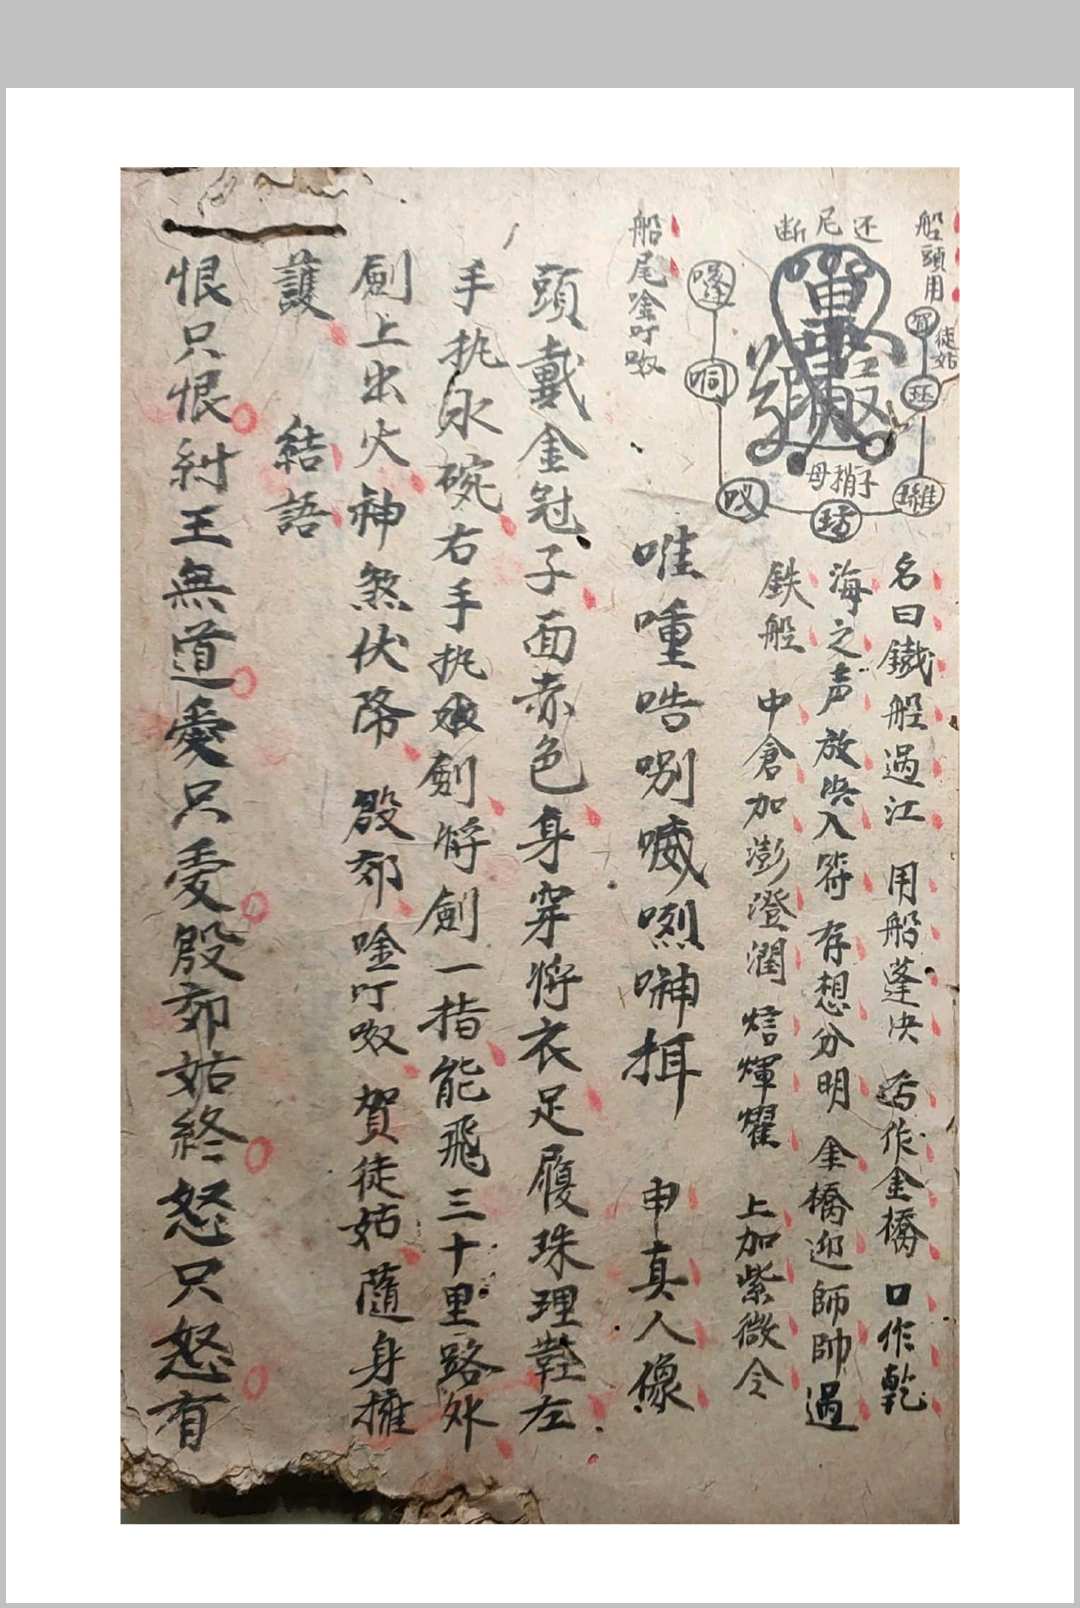 船頭用
徒姑
断尼还
母梢子
船尾唫叮呶
名曰鐵船過江 用船蓬决 舌作金橋 口作乾
海之声放决入符存想分明 金橋迎師帥過
鉄船 中倉加澎澄潤 焙輝耀 上加紫微令
唯喠哠喇喊㗚呻挕 申真人像
頭戴金冠子面赤色身穿將衣足履珠理鞋左
手执水碗右手执劍將劍一指能飛三十里路外
劍上出火神煞伏降 殷郊唫叮呶賀徒姑隨身擁
護 結語
恨只恨紂王無道愛只愛殷郊姑終怒只怒有